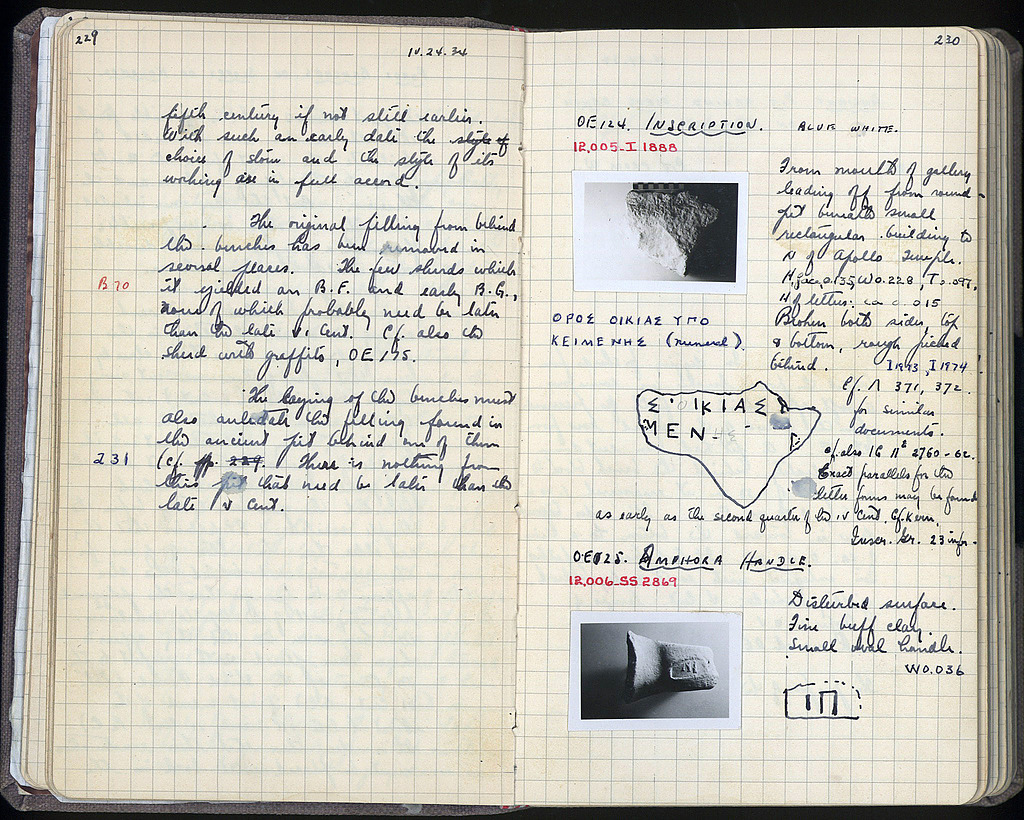 229
IV.24.34
fifth century if not still earlier.
With such an early date the style of
choice of stone and the style of its
working are in full accord.
The original filling from behind
the benches has been removed in
several places. The few sherds which
B 70
it yielded are B.F. and early B.G.,
none of which probably need be later
than the late VI Cent. Cf. also the
sherd with graffito, OE 175.
The laying of the benches must
also antedate the filling found in
the ancient pit behind one of them
231
(cf. pp. 229. There is nothing from
this pit that need be later than the
late V Cent.
230
OE 124. INSCRIPTION.
12,005-I 1888
BLUE WHITE.
From mouth of gallery
leading off from round
pit beneath small
rectangular building to
N of Apollo Temple.
W 0.228, T 0.097,
H of letter: ca 0.015
Broken both sides, top
& bottom, rough picked
behind.
I 1974
ΟΡΟΣ ΟΙΚΙΑΣ ΥΠΟ
ΚΕΙΜΕΝΗΣ (numeral).
Σ ΟΙΚΙΑΣ
ΜΕΝΗΣ
Cf. Λ 371, 372.
for similar
documents.
cf. also IG II² 2760-62.
Exact parallels for the
letter forms may be found
as early as the second quarter of the IV Cent. Cf. Kern,
Inscr. Gr. 23 infr.
OE 125. AMPHORA HANDLE.
12,006-SS 2869
Disturbed surface.
Fine buff clay.
Small oval handle.
W 0.036
ΙΠ